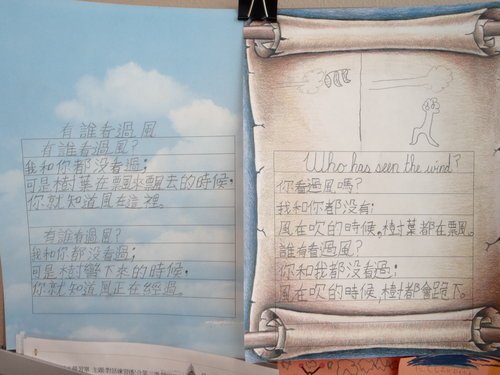 有誰看過風
有誰看過風？
我和你都沒看過；
可是樹葉在飄來飄去的時候，
你就知道風在這裡。
有誰看過風？
我和你都沒看過；
可是樹彎下來的時候，
你就知道風正在經過。
Who has seen the wind?
你看過風嗎？
我和你都沒有；
風在吹的時候，樹葉都在飄。
誰看看過風？
你和我都沒看過；
風在吹的時候，樹都會跪下。